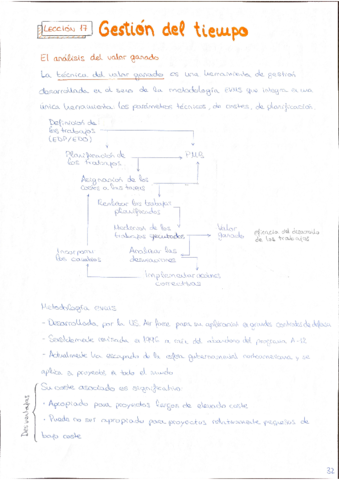 LECCIÓN 17 Gestión del tiempo
El análisis del valor ganado
La técnica del valor ganado es una herramienta de gestión
desarrollada en el seno de la metodología EVMS que integra en una
única herramienta los parámetros técnicos, de costes, de planificación
Definición de
los trabajos
(EDP/EDO)
Planificación de
los trabajos
PMB
Asignación de los
costes a las tareas
Realizar los trabajos
planificados
Medición de los
trabajos ejecutados
Valor
ganado
eficiencia del desarrollo
de los trabajos
Incorporar
los cambios
Analizar las
desviaciones
Implementar acciones
correctivas
Metodología EVMS
- Desarrollada por la US Air Force para su aplicación a grandes contratos de defensa
- 1996 a raíz del abandono del programa A-12
- Actualmente ha escapado de la esfera gubernamental norteamericana y se
aplica a proyectos en todo el mundo
Desventajas
Su coste asociado es significativo
- Apropiado para proyectos largos de elevado coste
- Puede no ser apropiado para proyectos relativamente pequeños de
bajo coste
82